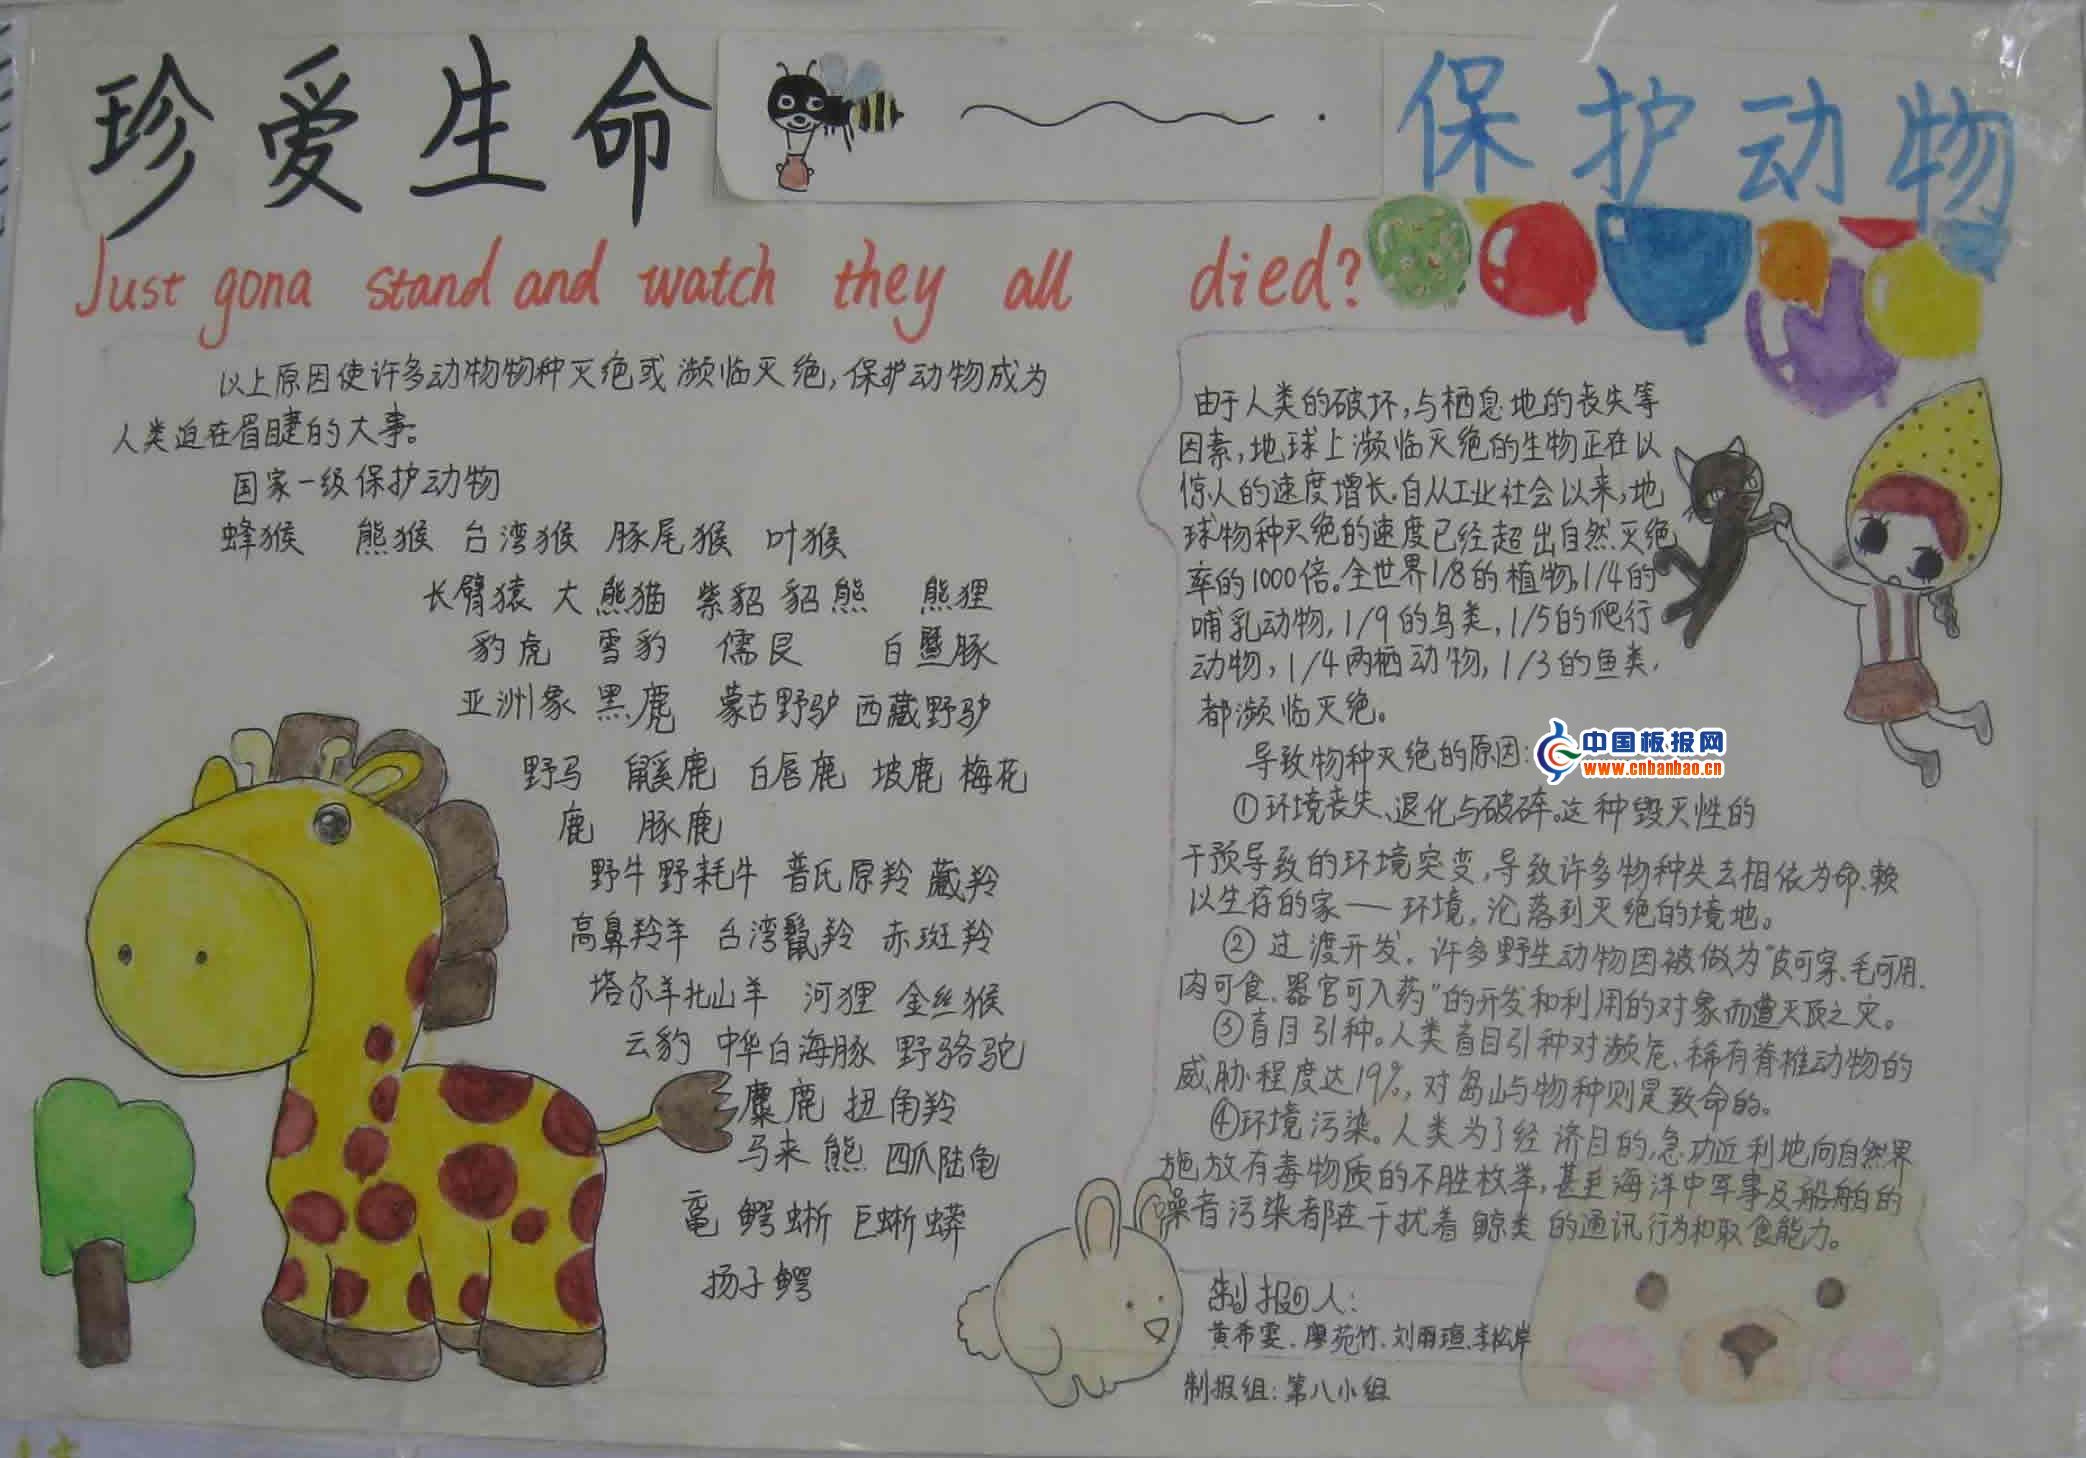 珍爱生命
保护动物
Just gona stand and watch they all died?
以上原因使许多动物物种灭绝或濒临灭绝,保护动物成为
人类迫在眉睫的大事。
国家一级保护动物
蜂猴 熊猴 台湾猴 豚尾猴 叶猴
长臂猿 大熊猫 紫貂 貂熊 熊狸
豹虎 雪豹 儒艮 白暨豚
亚洲象 黑鹿 蒙古野驴 西藏野驴
野马 鼷鹿 白唇鹿 坡鹿 梅花
鹿 豚鹿
野牛 野耗牛 普氏原羚 藏羚
高鼻羚羊 台湾鬣羚 赤斑羚
塔尔羊北山羊 河狸 金丝猴
云豹 中华白海豚 野骆驼
麋鹿 扭角羚
马来熊 四爪陆龟
鼋 鳄蜥 巨蜥 蟒
扬子鳄
由于人类的破坏,与栖息地的丧失等
因素,地球上濒临灭绝的生物正在以
惊人的速度增长.自从工业社会以来,地
球物种灭绝的速度已经超出自然灭绝
率的1000倍。全世界1/8的植物,1/4的
哺乳动物,1/9的鸟类,1/5的爬行
动物,1/4两栖动物,1/3的鱼类,
都濒临灭绝。
导致物种灭绝的原因:
①环境丧失、退化与破碎。这种毁灭性的
干预导致的环境突变,导致许多物种失去相依为命、赖
以生存的家——环境,沦落到灭绝的境地。
②过渡开发.许多野生动物因被做为"皮可穿、毛可用、
肉可食、器官可入药"的开发和利用的对象而遭灭顶之灾。
③盲目引种。人类盲目引种对濒危、稀有脊椎动物的
威胁程度达19%,对岛山与物种则是致命的。
④环境污染。人类为了经济目的,急功近利地向自然界
施放有毒物质的不胜枚举,甚至海洋中军事及船舶的
噪音污染都在干扰着鲸类的通讯行为和取食能力。
制报人:
黄希雯、廖苑竹、刘丽瑄、李松岸
制报组:第八小组
中国板报网
www.cnbanbao.cn